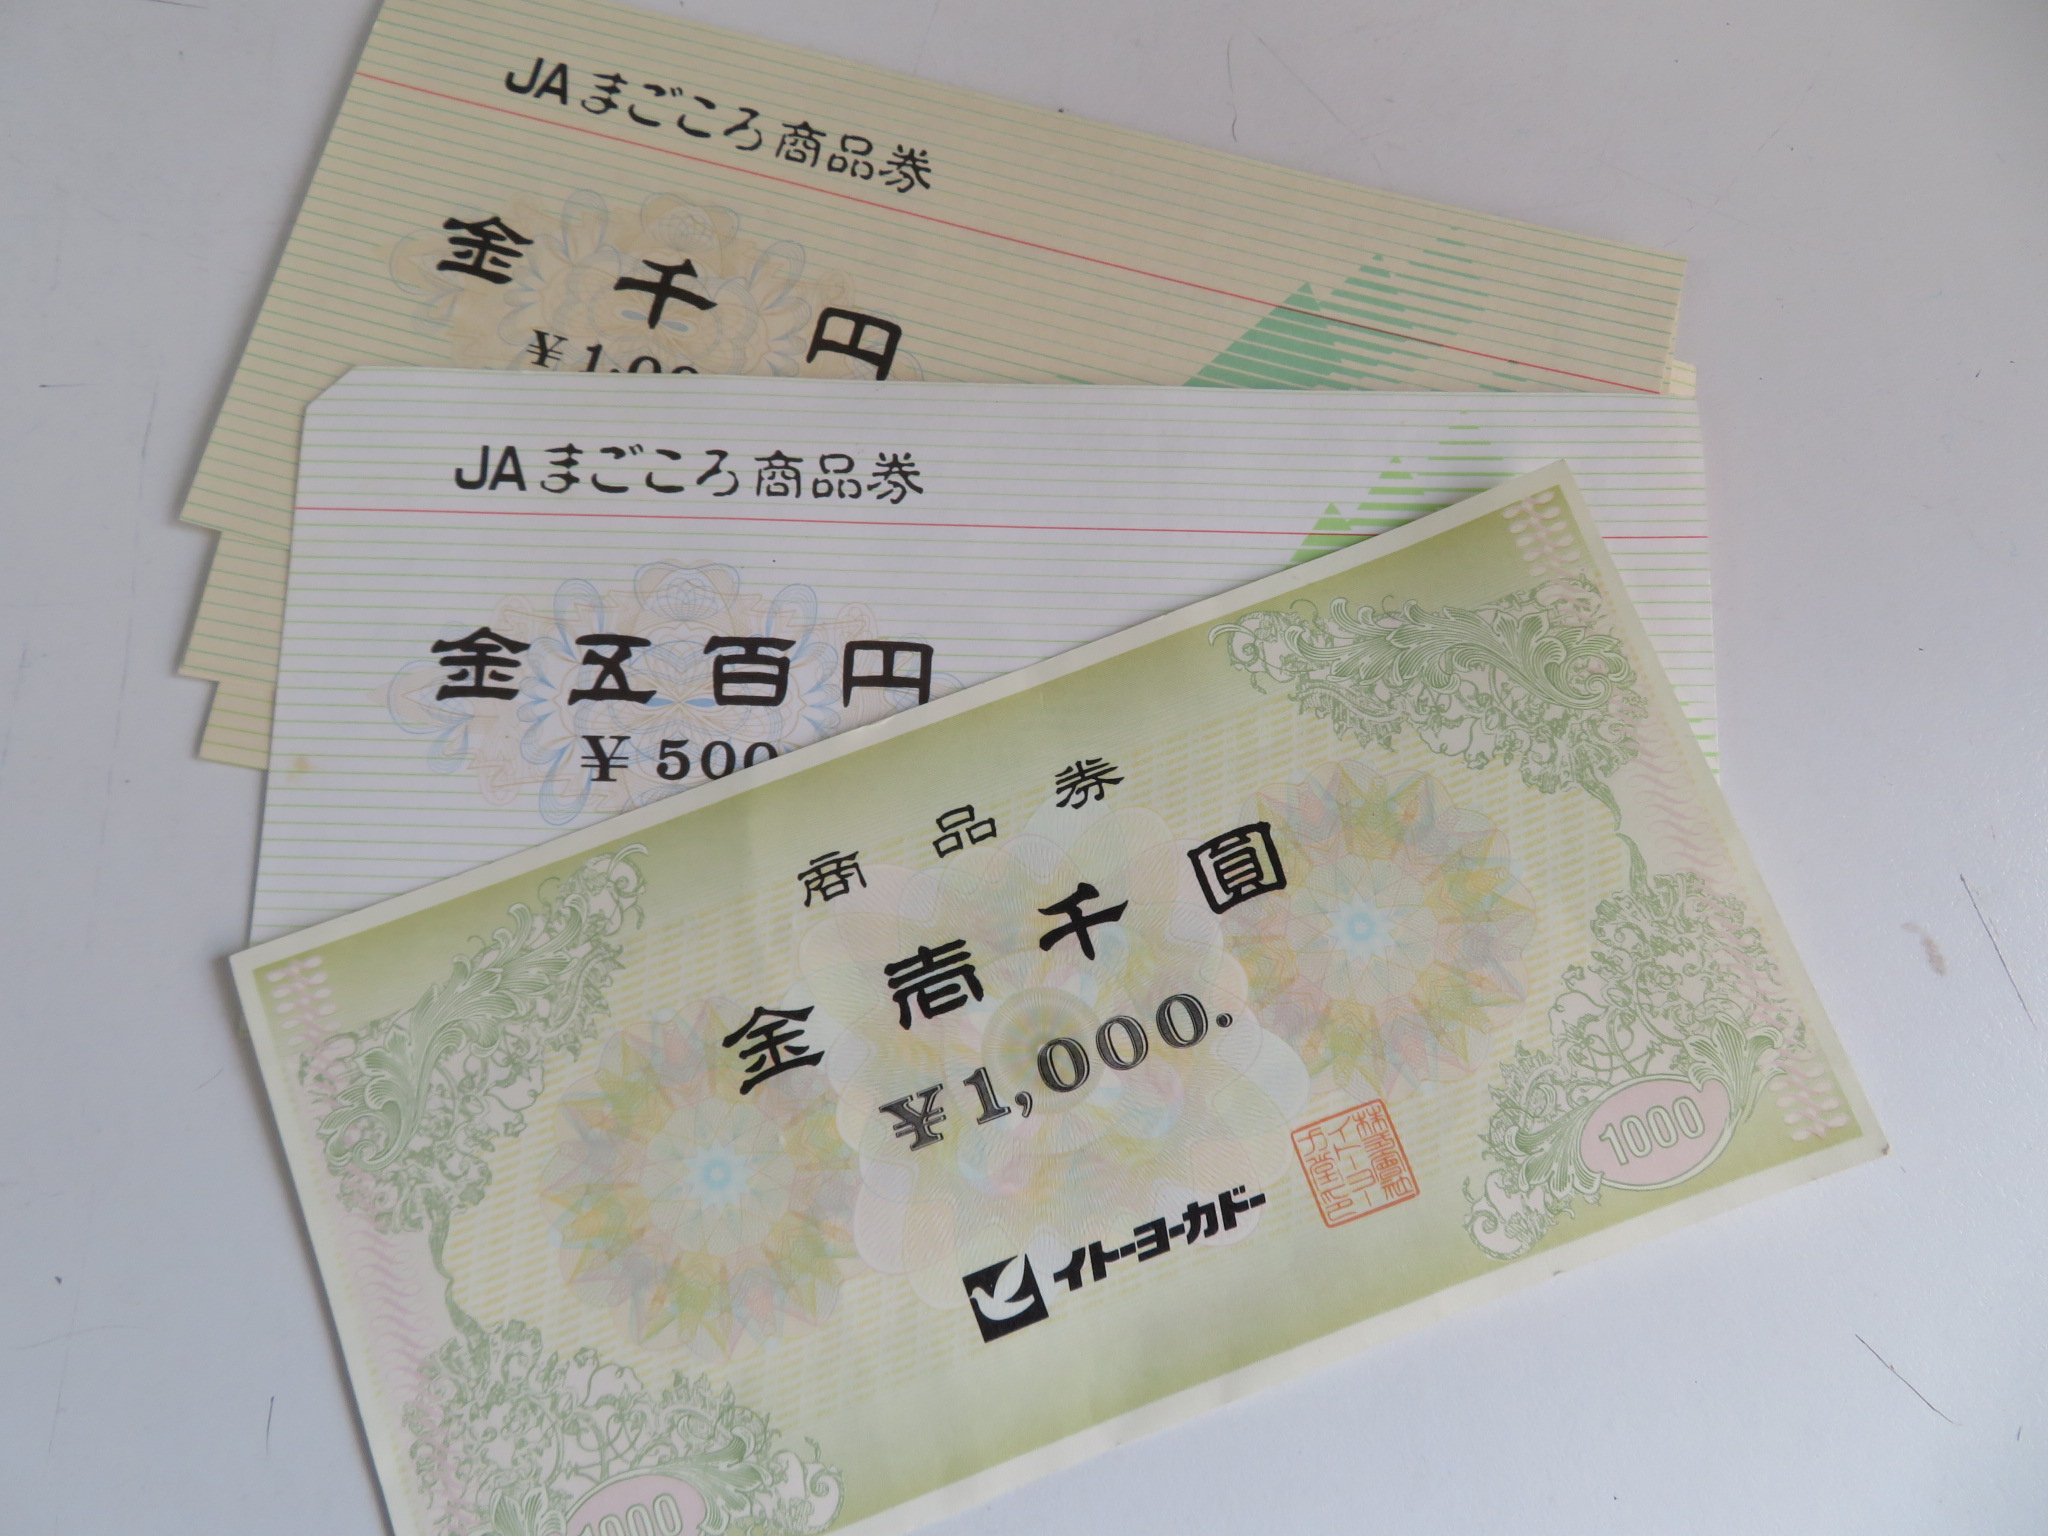 JAまごころ商品券
金千円
¥1,00
JAまごころ商品券
金五百円
¥500
商品券
金壱千圓
¥1,000.
イトーヨーカドー
株式會社
イトーヨー
カ堂之印
1000
1000